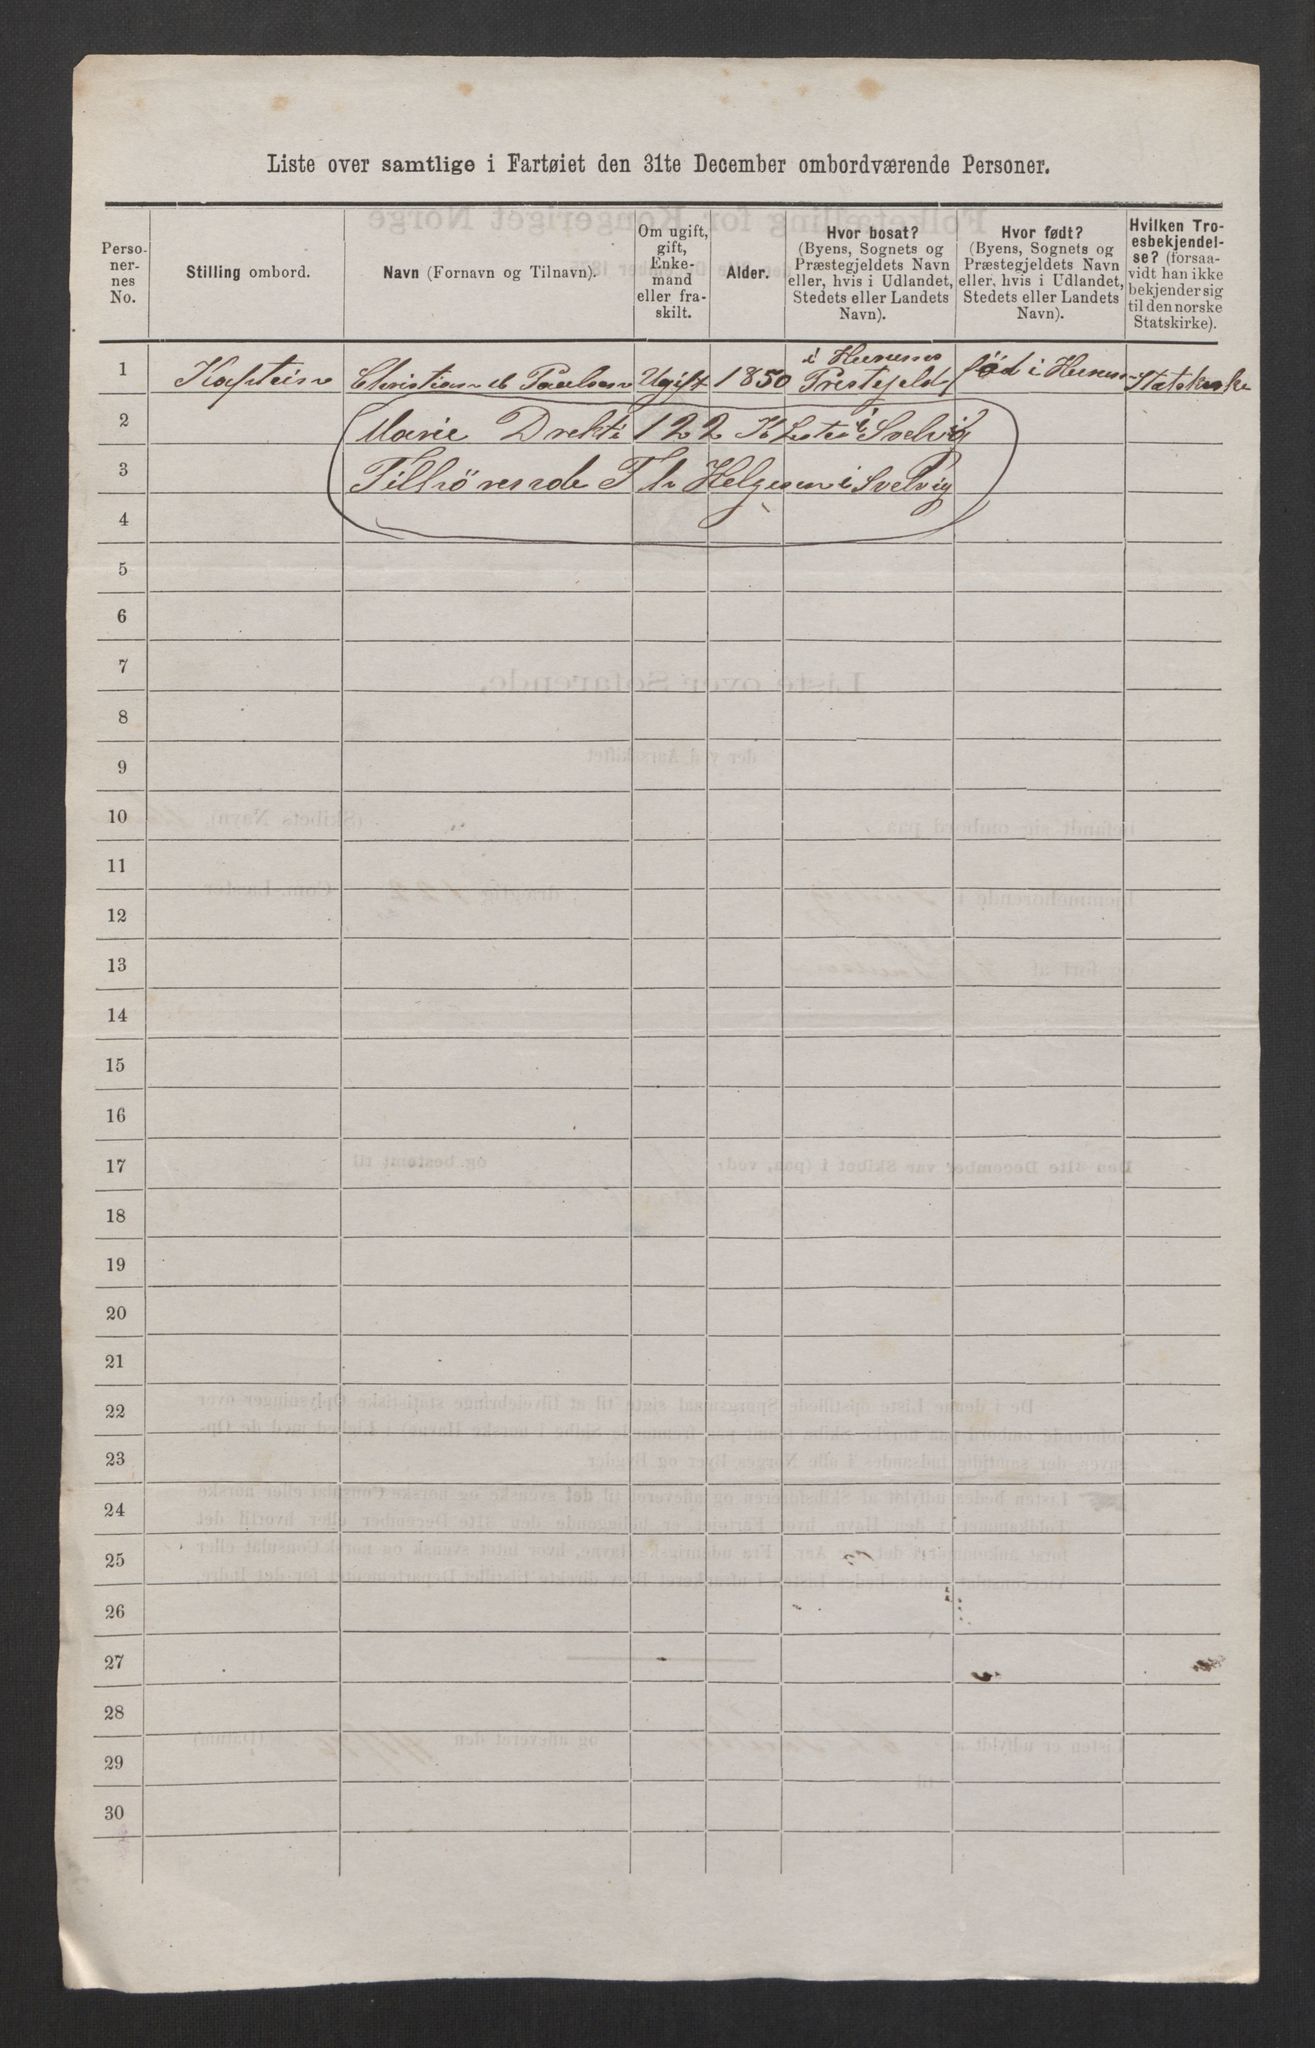 Liste over samtlige i Fartøiet den 31te December ombordværende Personer.
Perso-
ner-
nes
No.
Stilling ombord.
Navn (Fornavn og Tilnavn).
Om ugift,
gift,
Enke-
mand
eller fra-
skilt.
Alder.
Hvor bosat?
(Byens, Sognets og
Præstegjeldets Navn
eller, hvis i Udlandet,
Stedets eller Landets
Navn).
Hvor født?
(Byens, Sognets og
Præstegjeldets Navn
eller, hvis i Udlandet,
Stedets eller Landets
Navn).
Hvilken Tro-
esbekjendel-
se? (forsaa-
vidt han ikke
bekjender sig
til den norske
Statskirke).
i Hurums
1 Kaptein Christian Paulsen Ugift 1850 Prestejeld föd i Hurum
2 Marie Drekti 122 i Svelvig
3 Tilhörende Th Helgesen i Svelvig
4
5
6
7
8
9
10
11
12
13
14
15
16
17
18
19
20
21
22
23
24
25
26
27
28
29
30